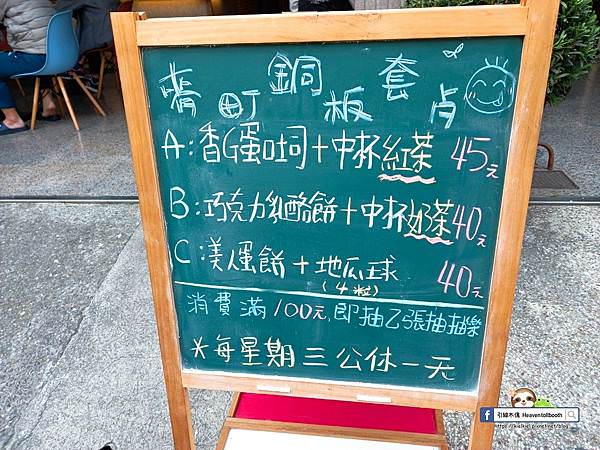 町銅板套點
A:香G蛋吐司+中杯紅茶 45元
B:巧克力乳酪餅+中杯奶茶40元
C:漢人蛋餅+地瓜球 40元
(4粒)
消費滿100元,即抽乙張抽抽樂
*每星期三公休一天
引線不慎 Heaventollbooth